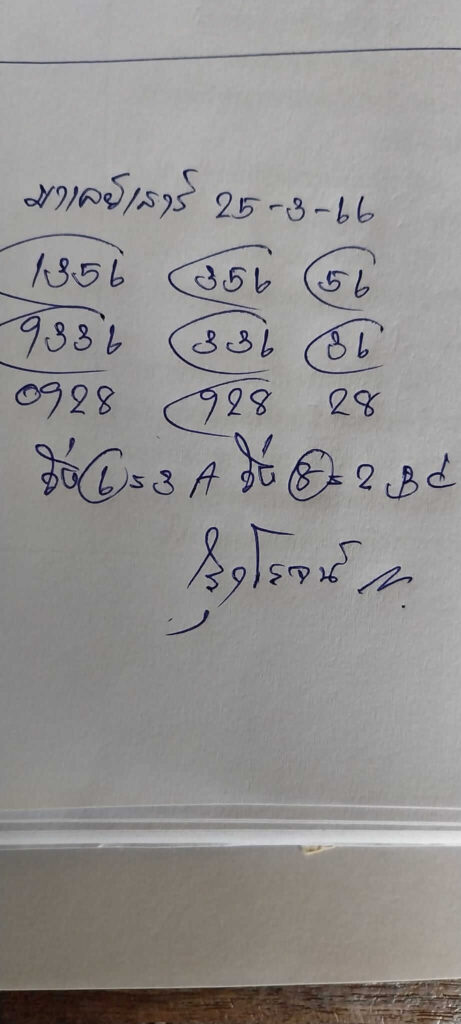 มาเลย์เสาร์ 25-3-66
1356 356 56
9336 336 36
0928 928 28
6=3 A 8=2 B C